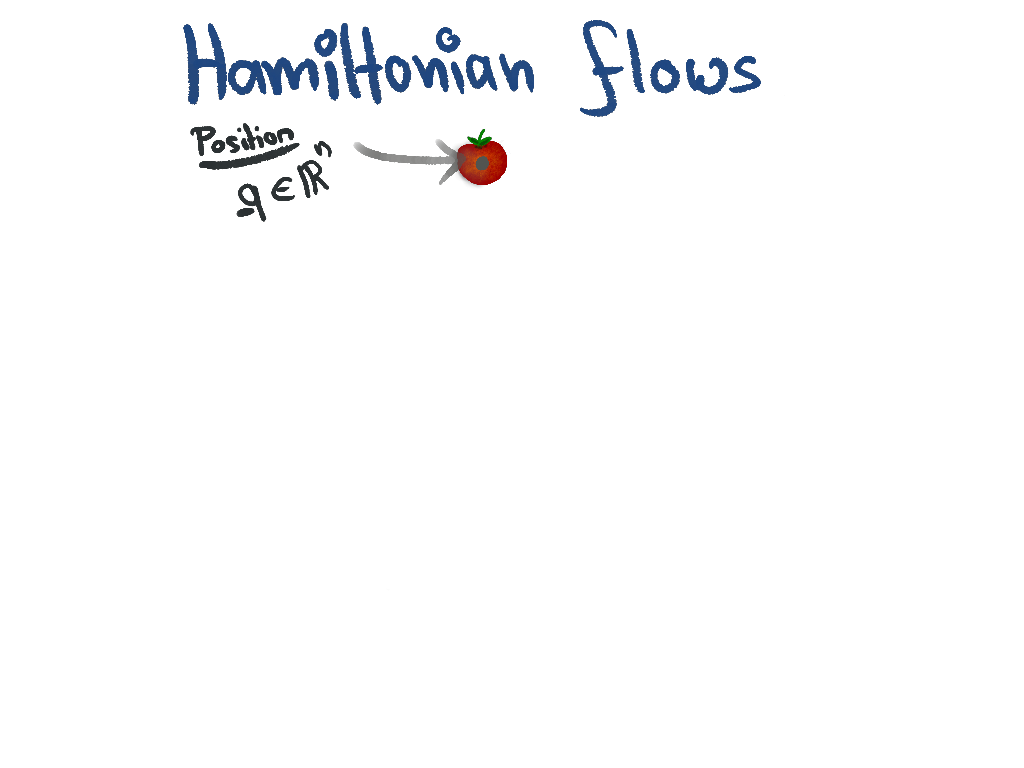 Hamiltonian flows
Position
q ∈ ℝⁿ